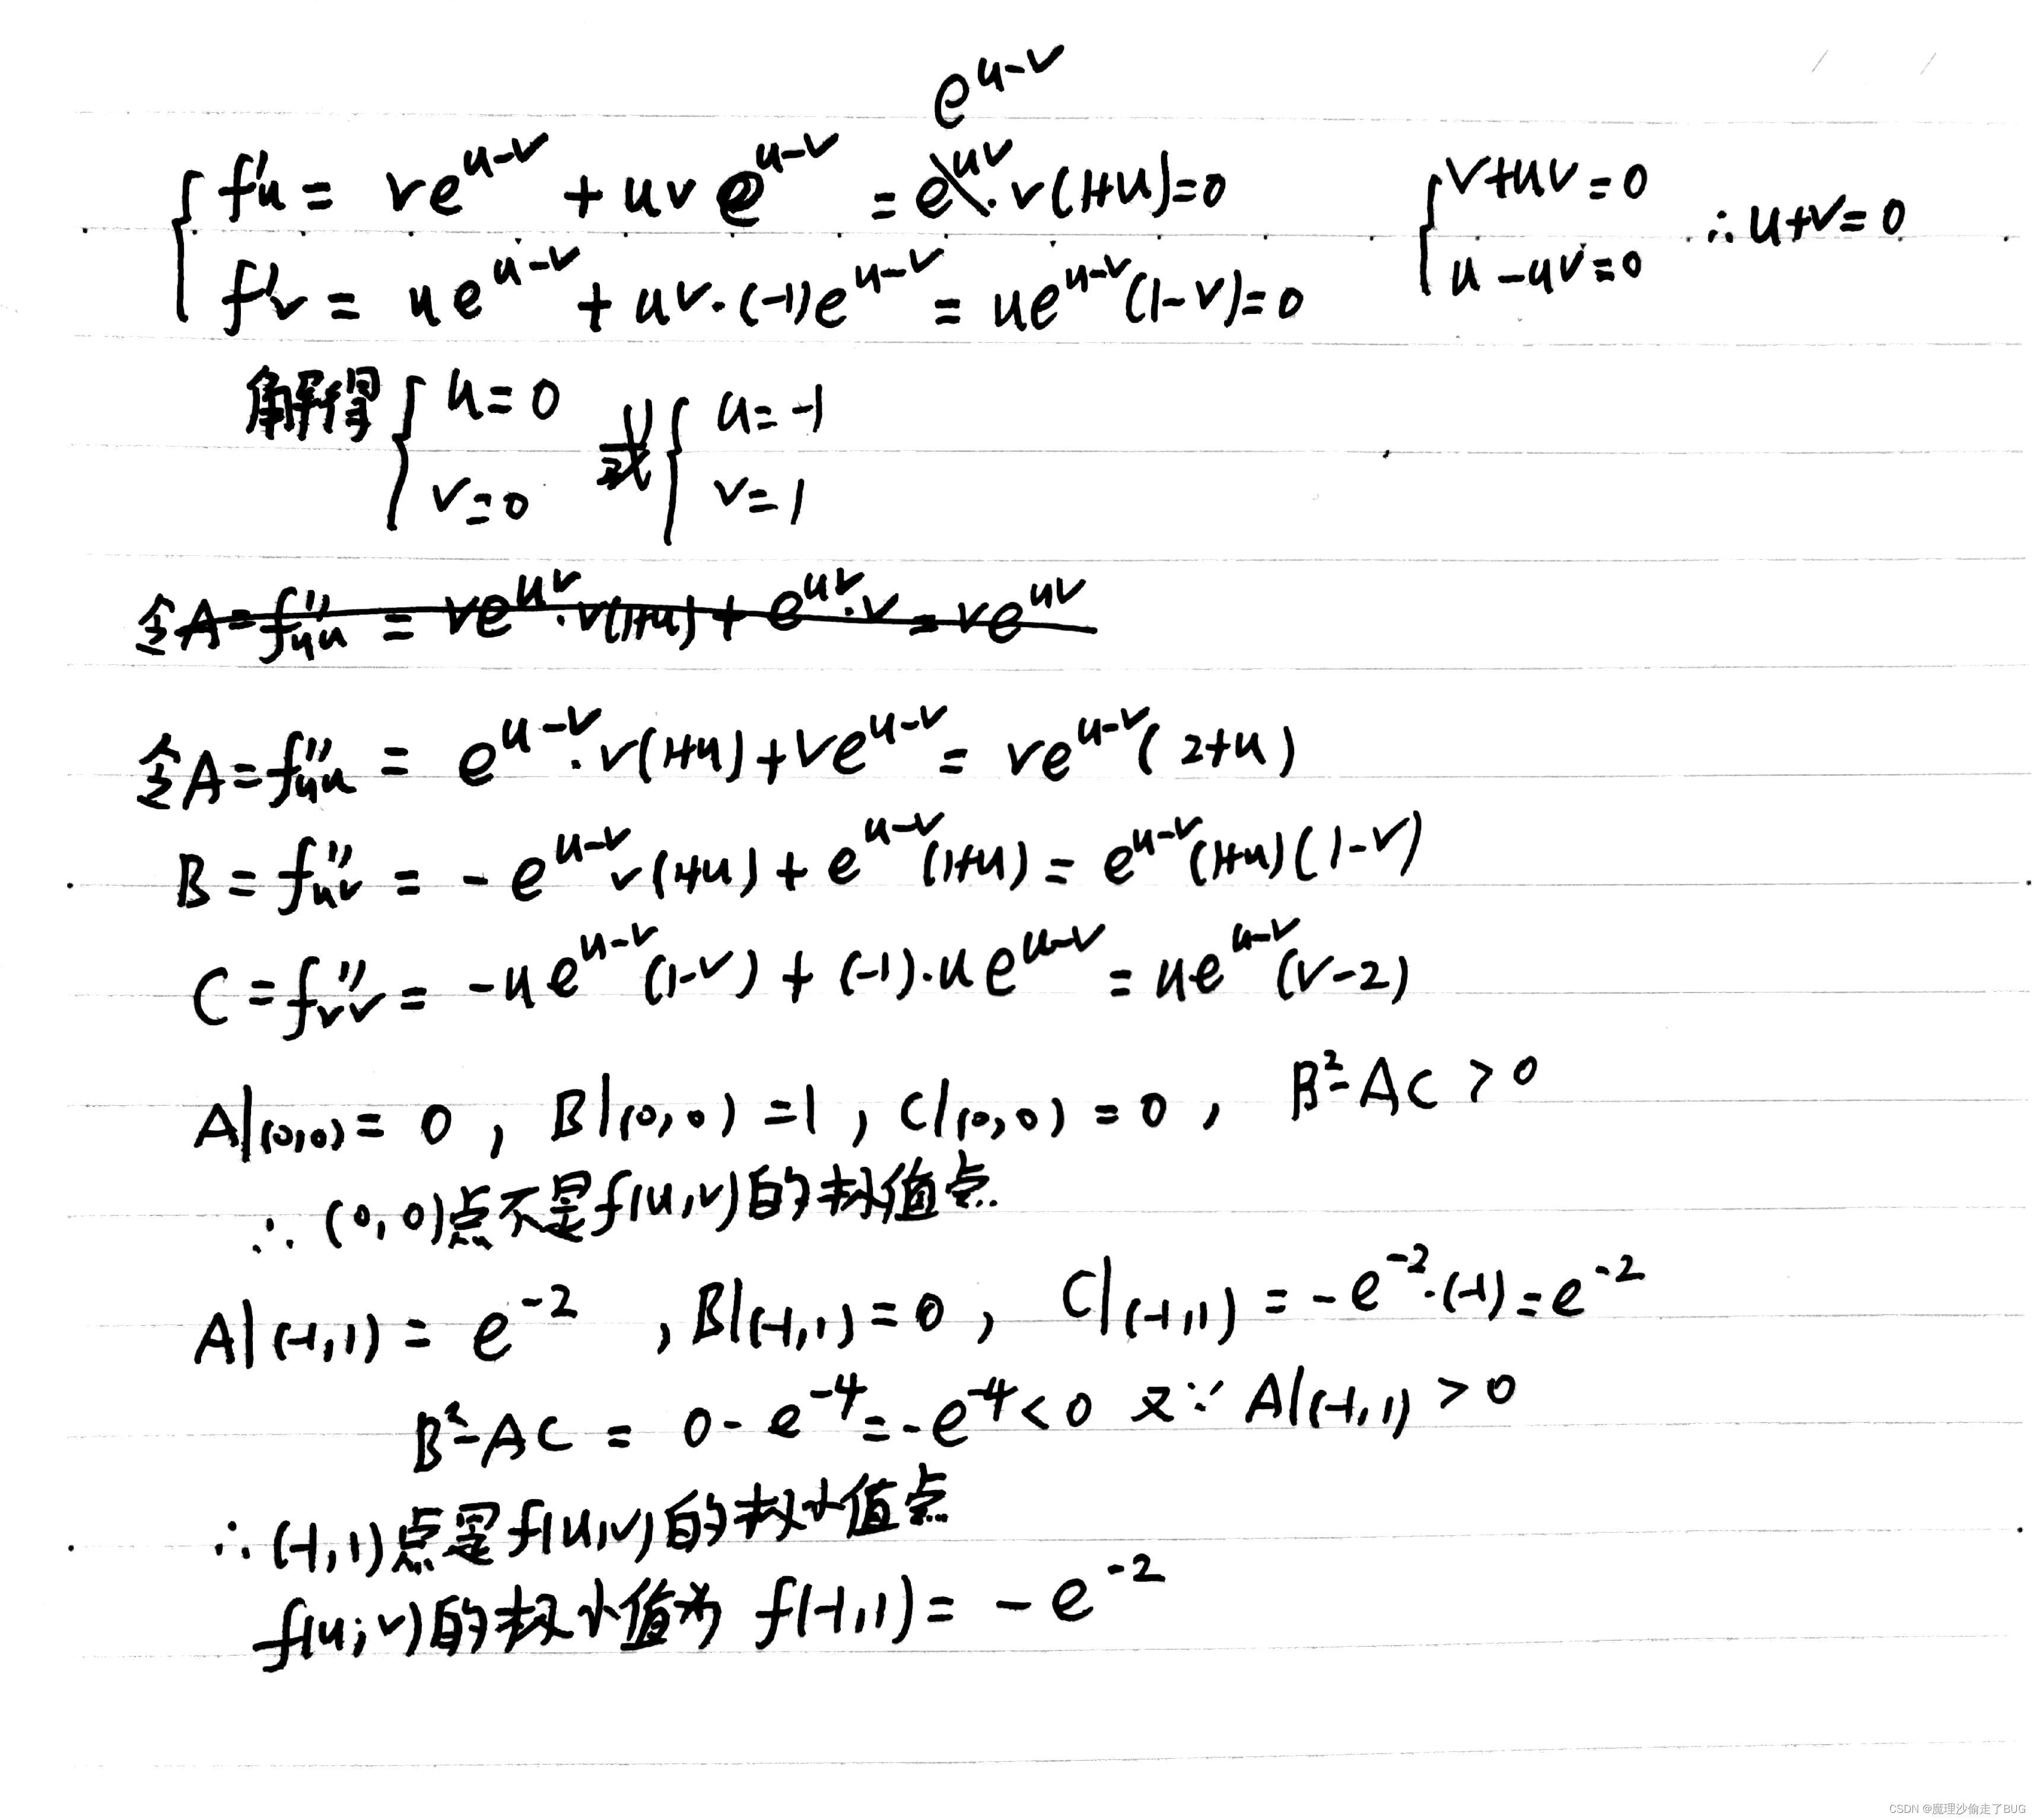 e^{u-v}
f'u = ve^{u-v} + uve^{u-v} = e^{uv}·v(1+u)=0
v+uv=0
u-uv=0
∴u+v=0
f'v = ue^{u-v} + uv·(-1)e^{u-v} = ue^{u-v}(1-v)=0
解得 { u=0 v=0 或 { u=-1 v=1
令A=f''uu = ve^{uv}·v(1+u)+e^{uv}·v=ve^{uv}
令A=f''uu = e^{u-v}·v(1+u)+ve^{u-v}=ve^{u-v}(2+u)
B=f''uv = -e^{u-v}v(1+u)+e^{u-v}(1+u)=e^{u-v}(1+u)(1-v)
C=f''vv= -ue^{u-v}(1-v)+(-1)·ue^{u-v}=ue^{u-v}(v-2)
A|(0,0)=0, B|(0,0)=1, C|(0,0)=0, B²-AC>0
∴(0,0)点不是f(u,v)的极值点.
A|(-1,1)=e^{-2}, B|(-1,1)=0, C|(-1,1)=-e^{-2}·(-1)=e^{-2}
B²-AC = 0-e^{-4}=-e^{-4}<0 又∵A|(-1,1)>0
∴(-1,1)点是f(u,v)的极小值点
f(u,v)的极小值为 f(-1,1)=-e^{-2}
CSDN @魔理沙偷走了BUG